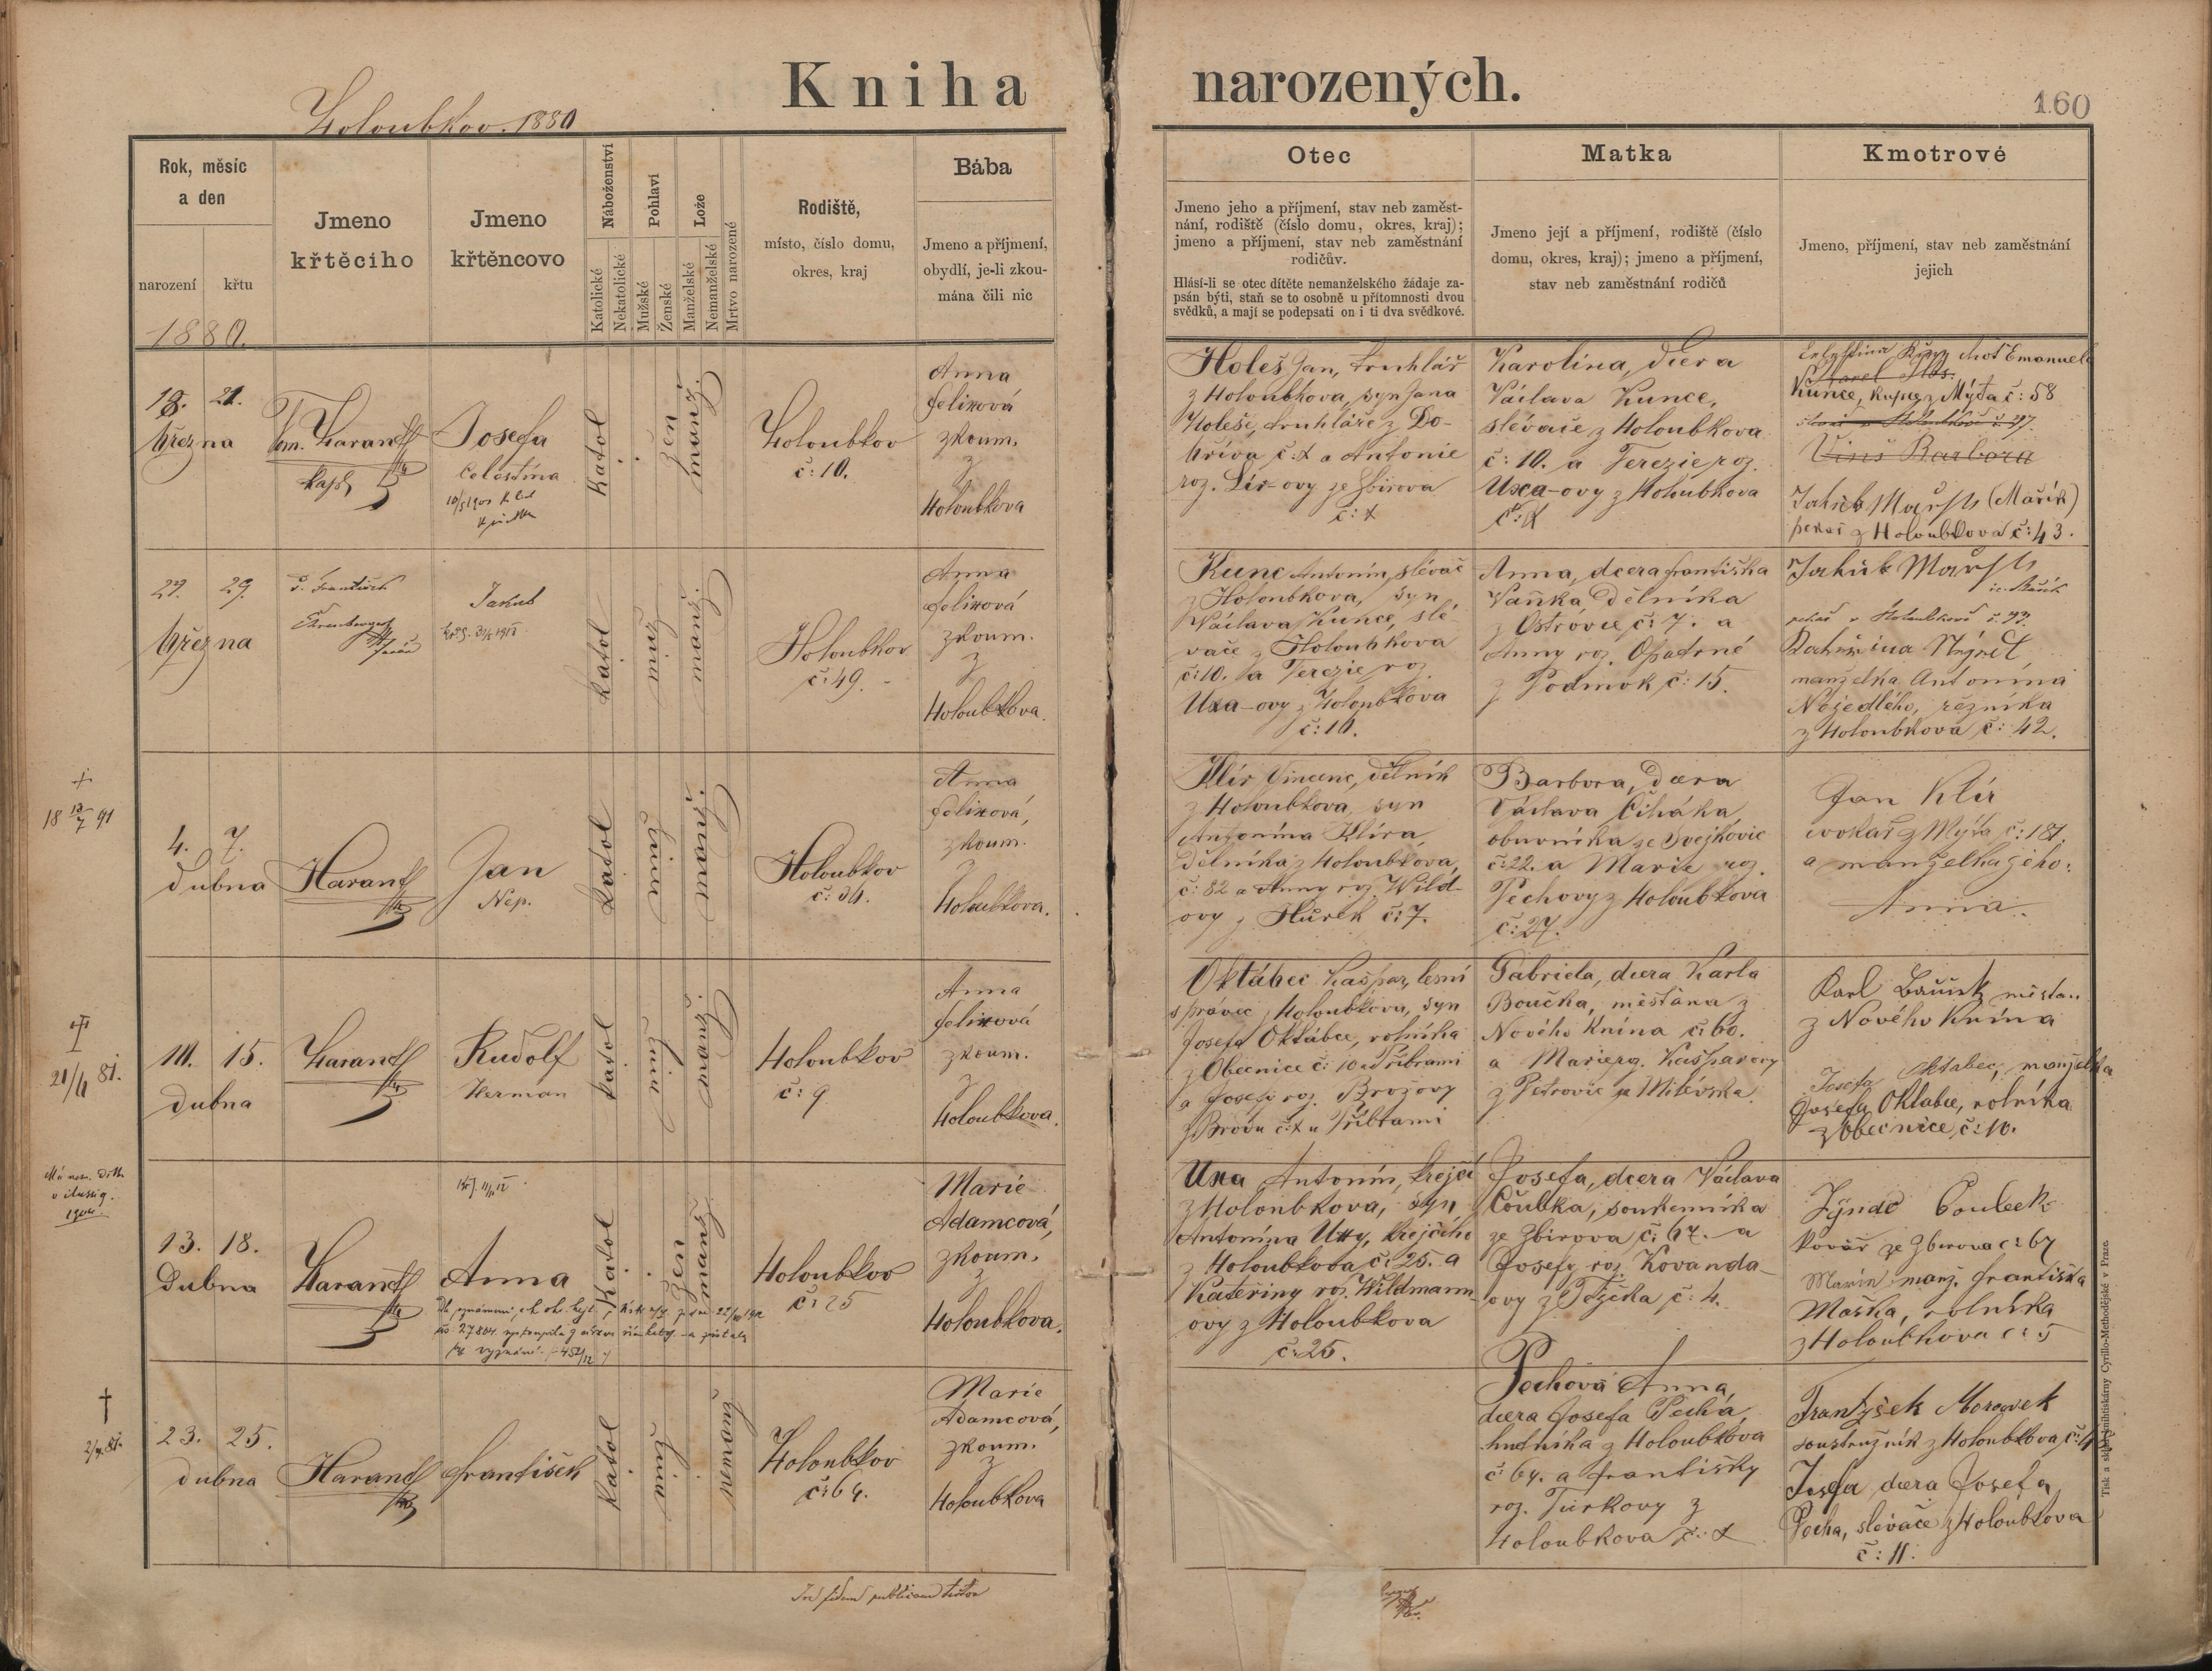 Kniha narozených.
Holoubkov. 1880
160
Rok, měsíc
a den
narození
křtu
1880.
Jmeno
křtěcího
Jmeno
křtěncovo
Náboženství
Katolické
Nekatolické
Pohlaví
Mužské
Ženské
Lože
Manželské
Nemanželské
Mrtvo narozené
Rodiště,
místo, číslo domu,
okres, kraj
Bába
Jmeno a příjmení,
obydlí, je-li zkou-
mána čili nic
Otec
Jmeno jeho a příjmení, stav neb zaměst-
nání, rodiště (číslo domu, okres, kraj);
jmeno a příjmení, stav neb zaměstnání
rodičův.
Hlásí-li se otec dítěte nemanželského žádaje za-
psán býti, staň se to osobně u přítomnosti dvou
svědků, a mají se podepsati on i ti dva svědkové.
Matka
Jmeno její a příjmení, rodiště (číslo
domu, okres, kraj); jmeno a příjmení,
stav neb zaměstnání rodičů
Kmotrové
Jmeno, příjmení, stav neb zaměstnání
jejich
18. 21.
března
Harant
kapl.
Josefa
Celestina
katol
žen
manž.
Holoubkov
č: 10.
Anna
Felixová
zkoum.
z
Holoubkova
Holeš Jan, truhlář
z Holoubkova, syn Jana
Holeše, truhláře z Do-
bříva č: x a Antonie
roz. Lír-ovy ze Zbirova
č: x
Karolina, dcera
Václava Kunce,
slévače z Holoubkova
č: 10. a Terezie roz.
Uxa-ovy z Holoubkova
č: x
choť Emanuela
Kunce, kupce z Mýta č: 58
Vinš Barbora
Jakub Mařík (Mařík)
pekař z Holoubkova č: 43.
27. 29.
března
P. František
Ehrenberger
Jakub
katol
muž.
manž.
Holoubkov
č: 49.
Anna
Felixová
zkoum.
z
Holoubkova.
Kunc Antonín, slévač
z Holoubkova, syn
Václava Kunce, slé-
vače z Holoubkova
č: 10. a Terezie roz.
Uxa-ovy z Holoubkova
č: 10.
Anna, dcera Františka
Vaňka dělníka
z Ostrovce č: 7. a
Anny roz. Opatrné
z Podmok č: 15.
Jakub Mařík
pekař v Holoubkově č. 43.
manželka Antonína
Nejedlého, řezníka
z Holoubkova č: 42.
†
18 13/7 91
4. 7.
dubna
Harant
Jan
Nep.
katol
muž.
manž.
Holoubkov
č: 34.
Anna
Felixová,
zkoum.
z
Holoubkova.
Klír Vincenc, dělník
z Holoubkova, syn
Antonína Klíra,
dělníka z Holoubkova,
č: 82 a Anny roz. Wild-
ovy z Hůrek č: 7.
Barbora, dcera
Václava Čiháka,
obuvníka ze Svejkovic
č: 22. a Marie roz.
Pechovy z Holoubkova
č: 27.
Jan Klír
cvokař z Mýta č: 181.
a manželka jeho:
Anna.
†
21/4 81.
10. 15.
dubna
Harant
Rudolf
Herman
katol
muž.
manž.
Holoubkov
č: 9
Anna
Felixová
zkoum.
z
Holoubkova.
Oktábec Kašpar, lesní
správce z Holoubkova, syn
Josefa Oktábce, rolníka
z Obecnice č: 10 u Příbrami
a Josefy roz. Brozovy
z Brodu č: x u Příbrami
Gabriela, dcera Karla
Boučka, měšťana z
Nového Knína č: 60.
a Marie roz. Kašparovy
z Petrovic u Milévska.
Karl Bouček měšťan
z Nového Knína
Josefa Oktabec, manželka
Josefa Oktabce, rolníka
z Obecnice č: 10.
1904.
13. 18.
dubna
Harant
Anna
katol
žen
manž
Holoubkov
č: 25
Marie
Adamcová,
zkoum.
z
Holoubkova.
Uxa Antonín, krejčí
z Holoubkova, syn
Antonína Uxy, krejčího
z Holoubkova č: 25. a
Kateřiny roz. Wildmann-
ovy z Holoubkova
č: 25.
Josefa, dcera Václava
Čoubka, soukenníka
ze Zbirova č: 67. a
Josefy roz. Kovanda-
ovy z Těžka č: 4.
kovář ze Zbirova č: 67
manž. Františka
Maška, rolníka
z Holoubkova č: 5
†
2/4. 81.
23. 25.
dubna
Harant
František
katol
muž.
nemanž.
Holoubkov
č: 64.
Marie
Adamcová,
zkoum.
z
Holoubkova
Pechová Anna,
dcera Josefa Pecha,
hutníka z Holoubkova
č: 64. a Františky
roz. Turkovy z
Holoubkova č: x
Frantyšek Moravek
soustružník z Holoubkova č: 4
Josefa dcera Josefa
Pecha, slévače z Holoubkova
č: 11.
Tisk a sklad knihtiskárny Cyrillo-Methodějské v Praze.